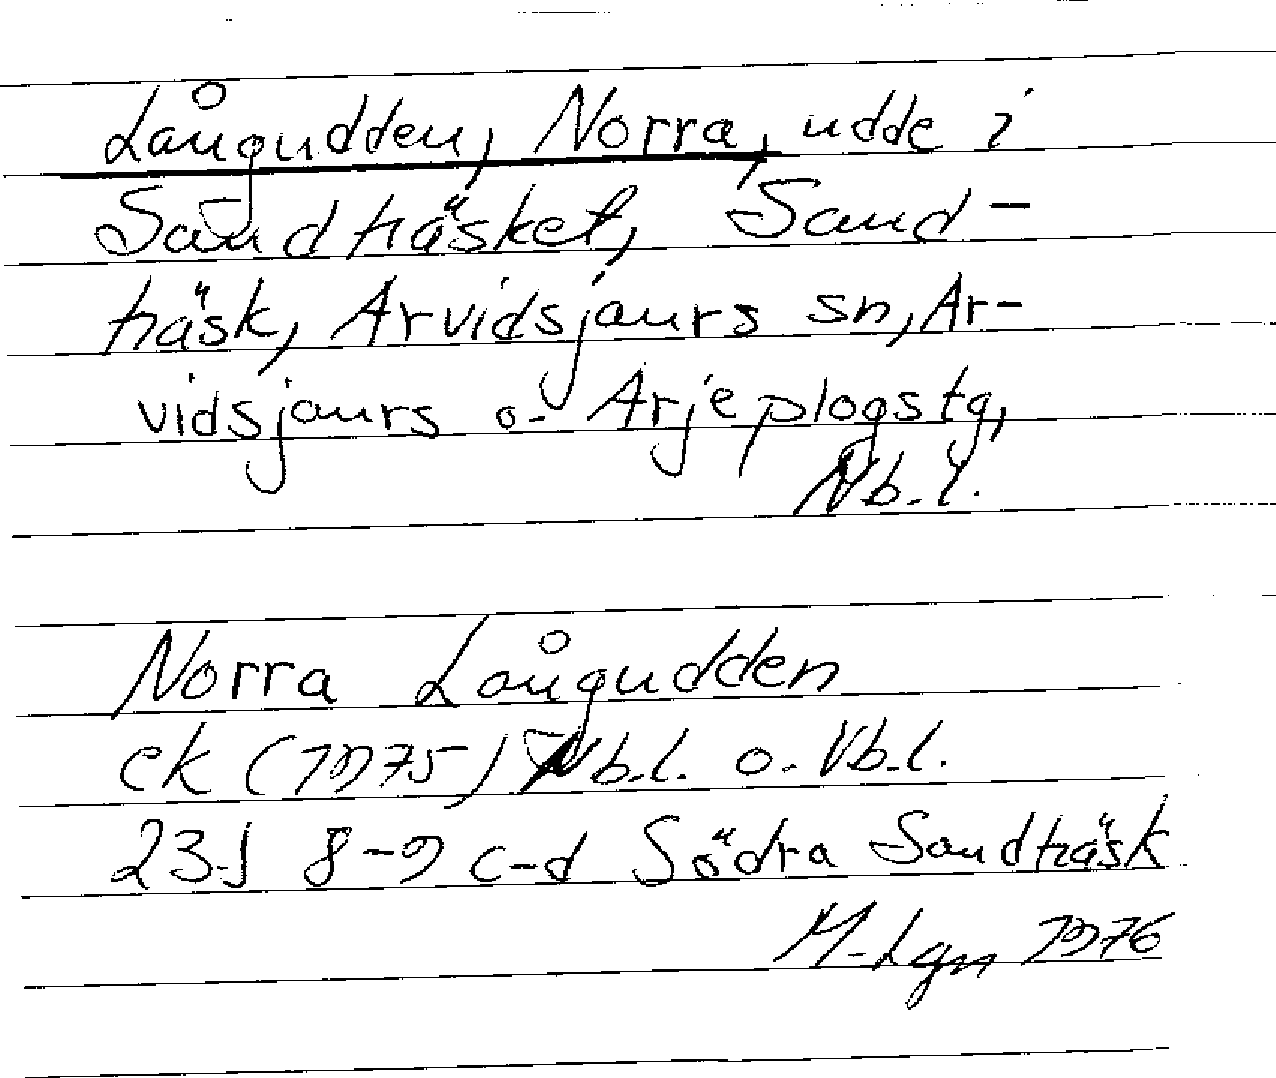 Långudden, Norra, udde i
Sandträsket, Sand-
träsk, Arvidsjaurs sn, Ar-
vidsjaurs o. Arjeplogs tg,
Nb.l.
Norra Långudden
ek (1975) Nb.l. o. Vb.l.
23J 8-9 c-d Södra Sandträsk
M-Lgn 1976